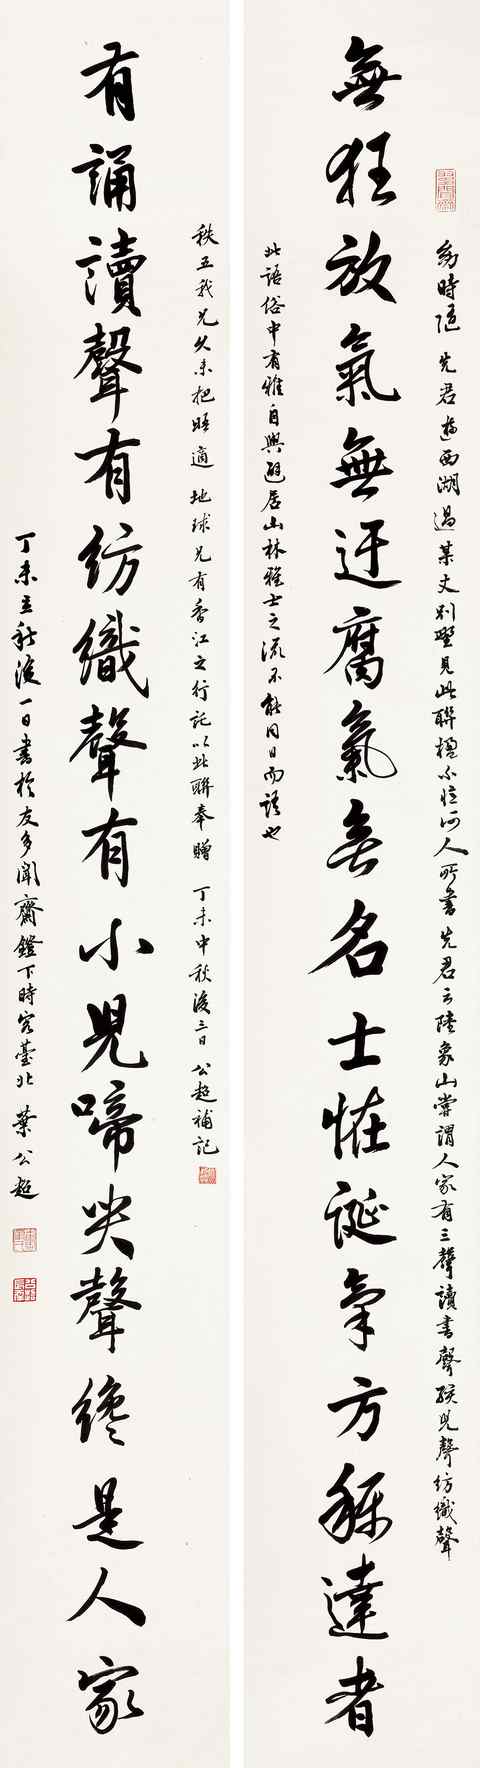 幼時隨 先君遊西湖過某丈別墅見此聯楹不憶何人所書先君云陸象山嘗謂人家有三聲讀書聲孩兒聲紡織聲
無狂放氣無迂腐氣無名士恠誕氣方稱達者
此語俗中有雅自與避居山林雅士之流不能同日而語也
秩五我兄久未把晤適 地球兄有香江之行託以此聯奉贈 丁未中秋後三日 公超補記
有誦讀聲有紡織聲有小兒啼哭聲纔是人家
丁未立秋後一日書於友多聞齋鐙下時客臺北 葉公超